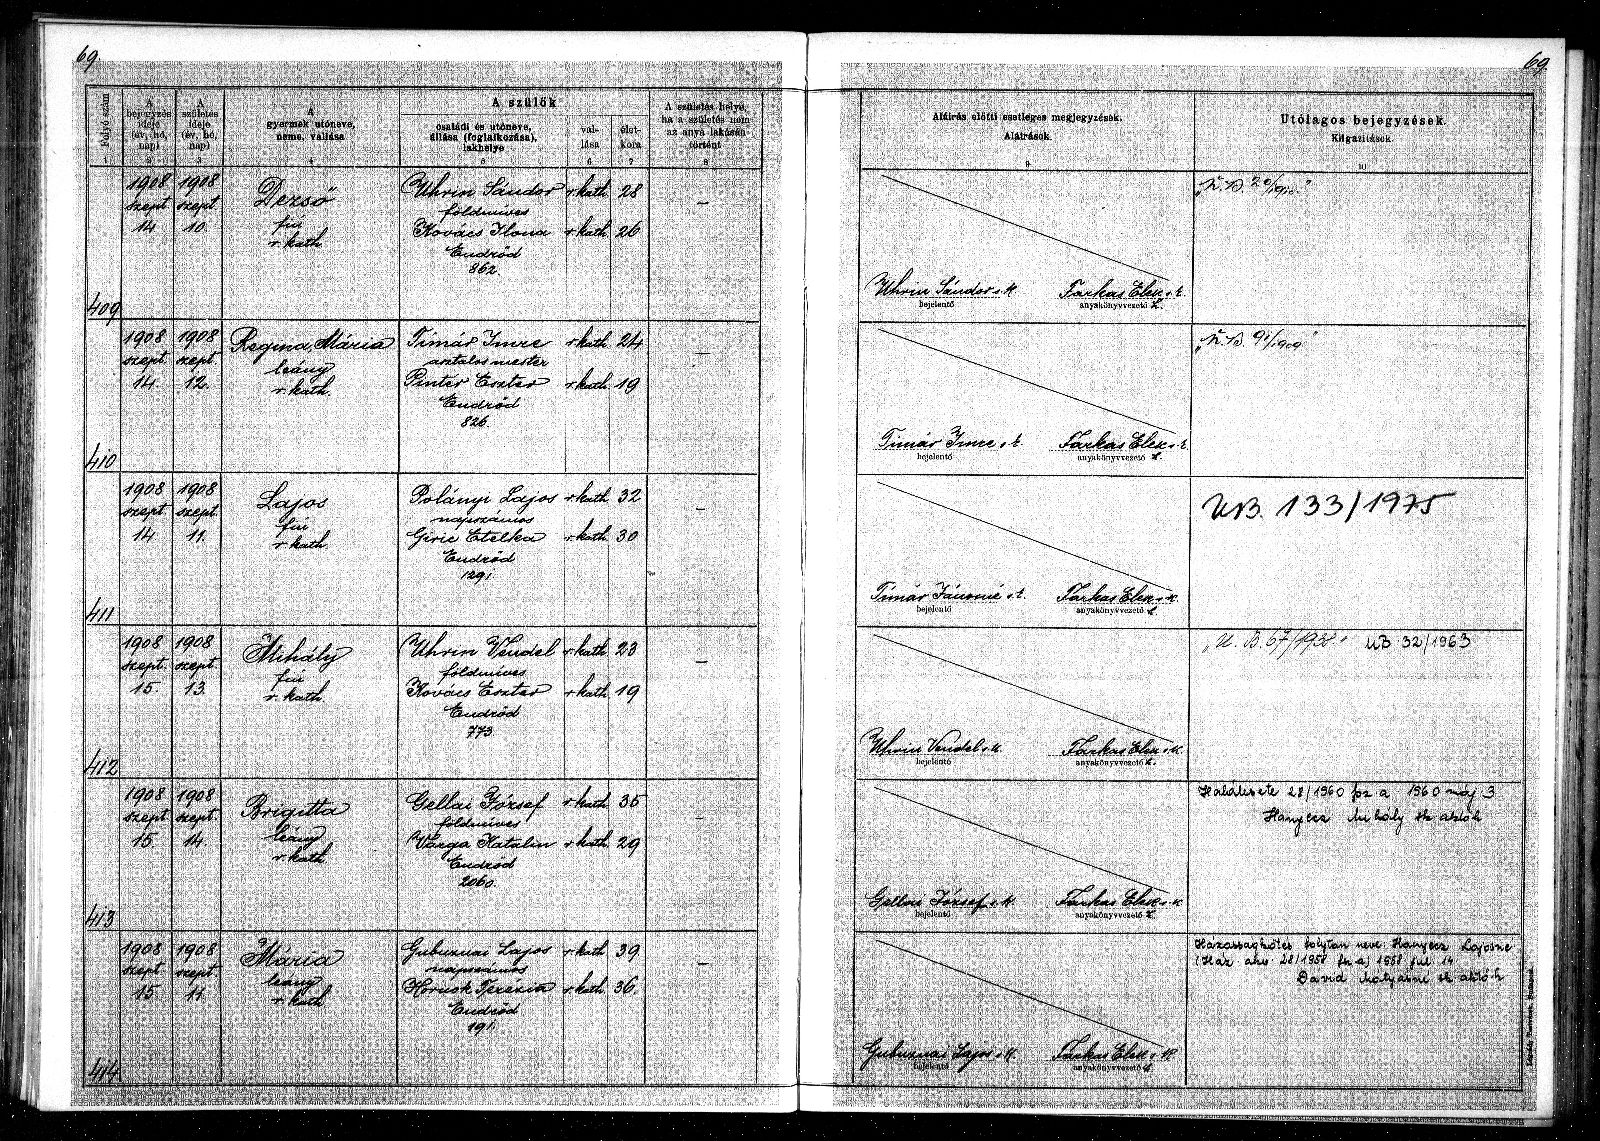 69.
69.
Folyó szám
A bejegyzés ideje (év, hó, nap)
A születés ideje (év, hó, nap)
A gyermek utóneve, neme, vallása
A szülők
családi és utóneve, állása (foglalkozása), lakhelye
vallása
életkora
A születés helye, ha a születés nem az anya lakásán történt
Aláírás előtti esetleges megjegyzések.
Aláírások.
Utólagos bejegyzések.
Kiigazítások.
1 2 3 4 5 6 7 8 9 10
409
1908 szept. 14
1908 szept. 10.
Dezső
fiú
r. kath.
Uhrin Sándor r. kath. 28
földmíves
Kovács Ilona r. kath. 26
Endrőd
862.
—
Uhrin Sándor s. k.
bejelentő
Farkas Elek s. k.
anyakönyvvezető
410
1908 szept. 14.
1908 szept. 12.
Regina, Mária
leány
r. kath.
Timár Imre r. kath. 24
asztalos mester
Pintér Eszter r. kath. 19
Endrőd
826.
—
Timár Imre s. k.
bejelentő
Farkas Elek s. k.
anyakönyvvezető
411
1908 szept. 14
1908 szept. 11.
Lajos
fiú
r. kath.
Polányi Lajos r. kath. 32
napszámos
Giric Etelka r. kath. 30
Endrőd
—
Timár Jánosné s. k.
bejelentő
Farkas Elek s. k.
anyakönyvvezető
UB. 133/1975
412
1908 szept. 15.
1908 szept. 13.
Mihály
fiú
r. kath.
Uhrin Vendel r. kath. 23
földmíves
Kovács Eszter r. kath. 19
Endrőd
773
—
Uhrin Vendel s. k.
bejelentő
Farkas Elek s. k.
anyakönyvvezető
UB 32/1963
413
1908 szept. 15.
1908 szept. 14.
Brigitta
leány
r. kath.
Gellai József r. kath. 35
földmíves
Varga Katalin r. kath. 29
Endrőd
2060.
—
Gellai József s. k.
bejelentő
Farkas Elek s. k.
anyakönyvvezető
Halálesete 28/1960 fsz a 1960 máj 3
Hanyecz Mihály
414
1908 szept. 15
1908 szept. 11.
Mária
leány
r. kath.
Gubuznai Lajos r. kath. 39
napszámos
Hornok Terézia r. kath. 36.
Endrőd
191.
—
Gubuznai Lajos s. k.
bejelentő
Farkas Elek s. k.
anyakönyvvezető
Házasságkötés folytán neve Hanyecz Lajosné
(Ház. akv. 28/1958 fsz a) 1958 júl 14
Dávid Mátyásné